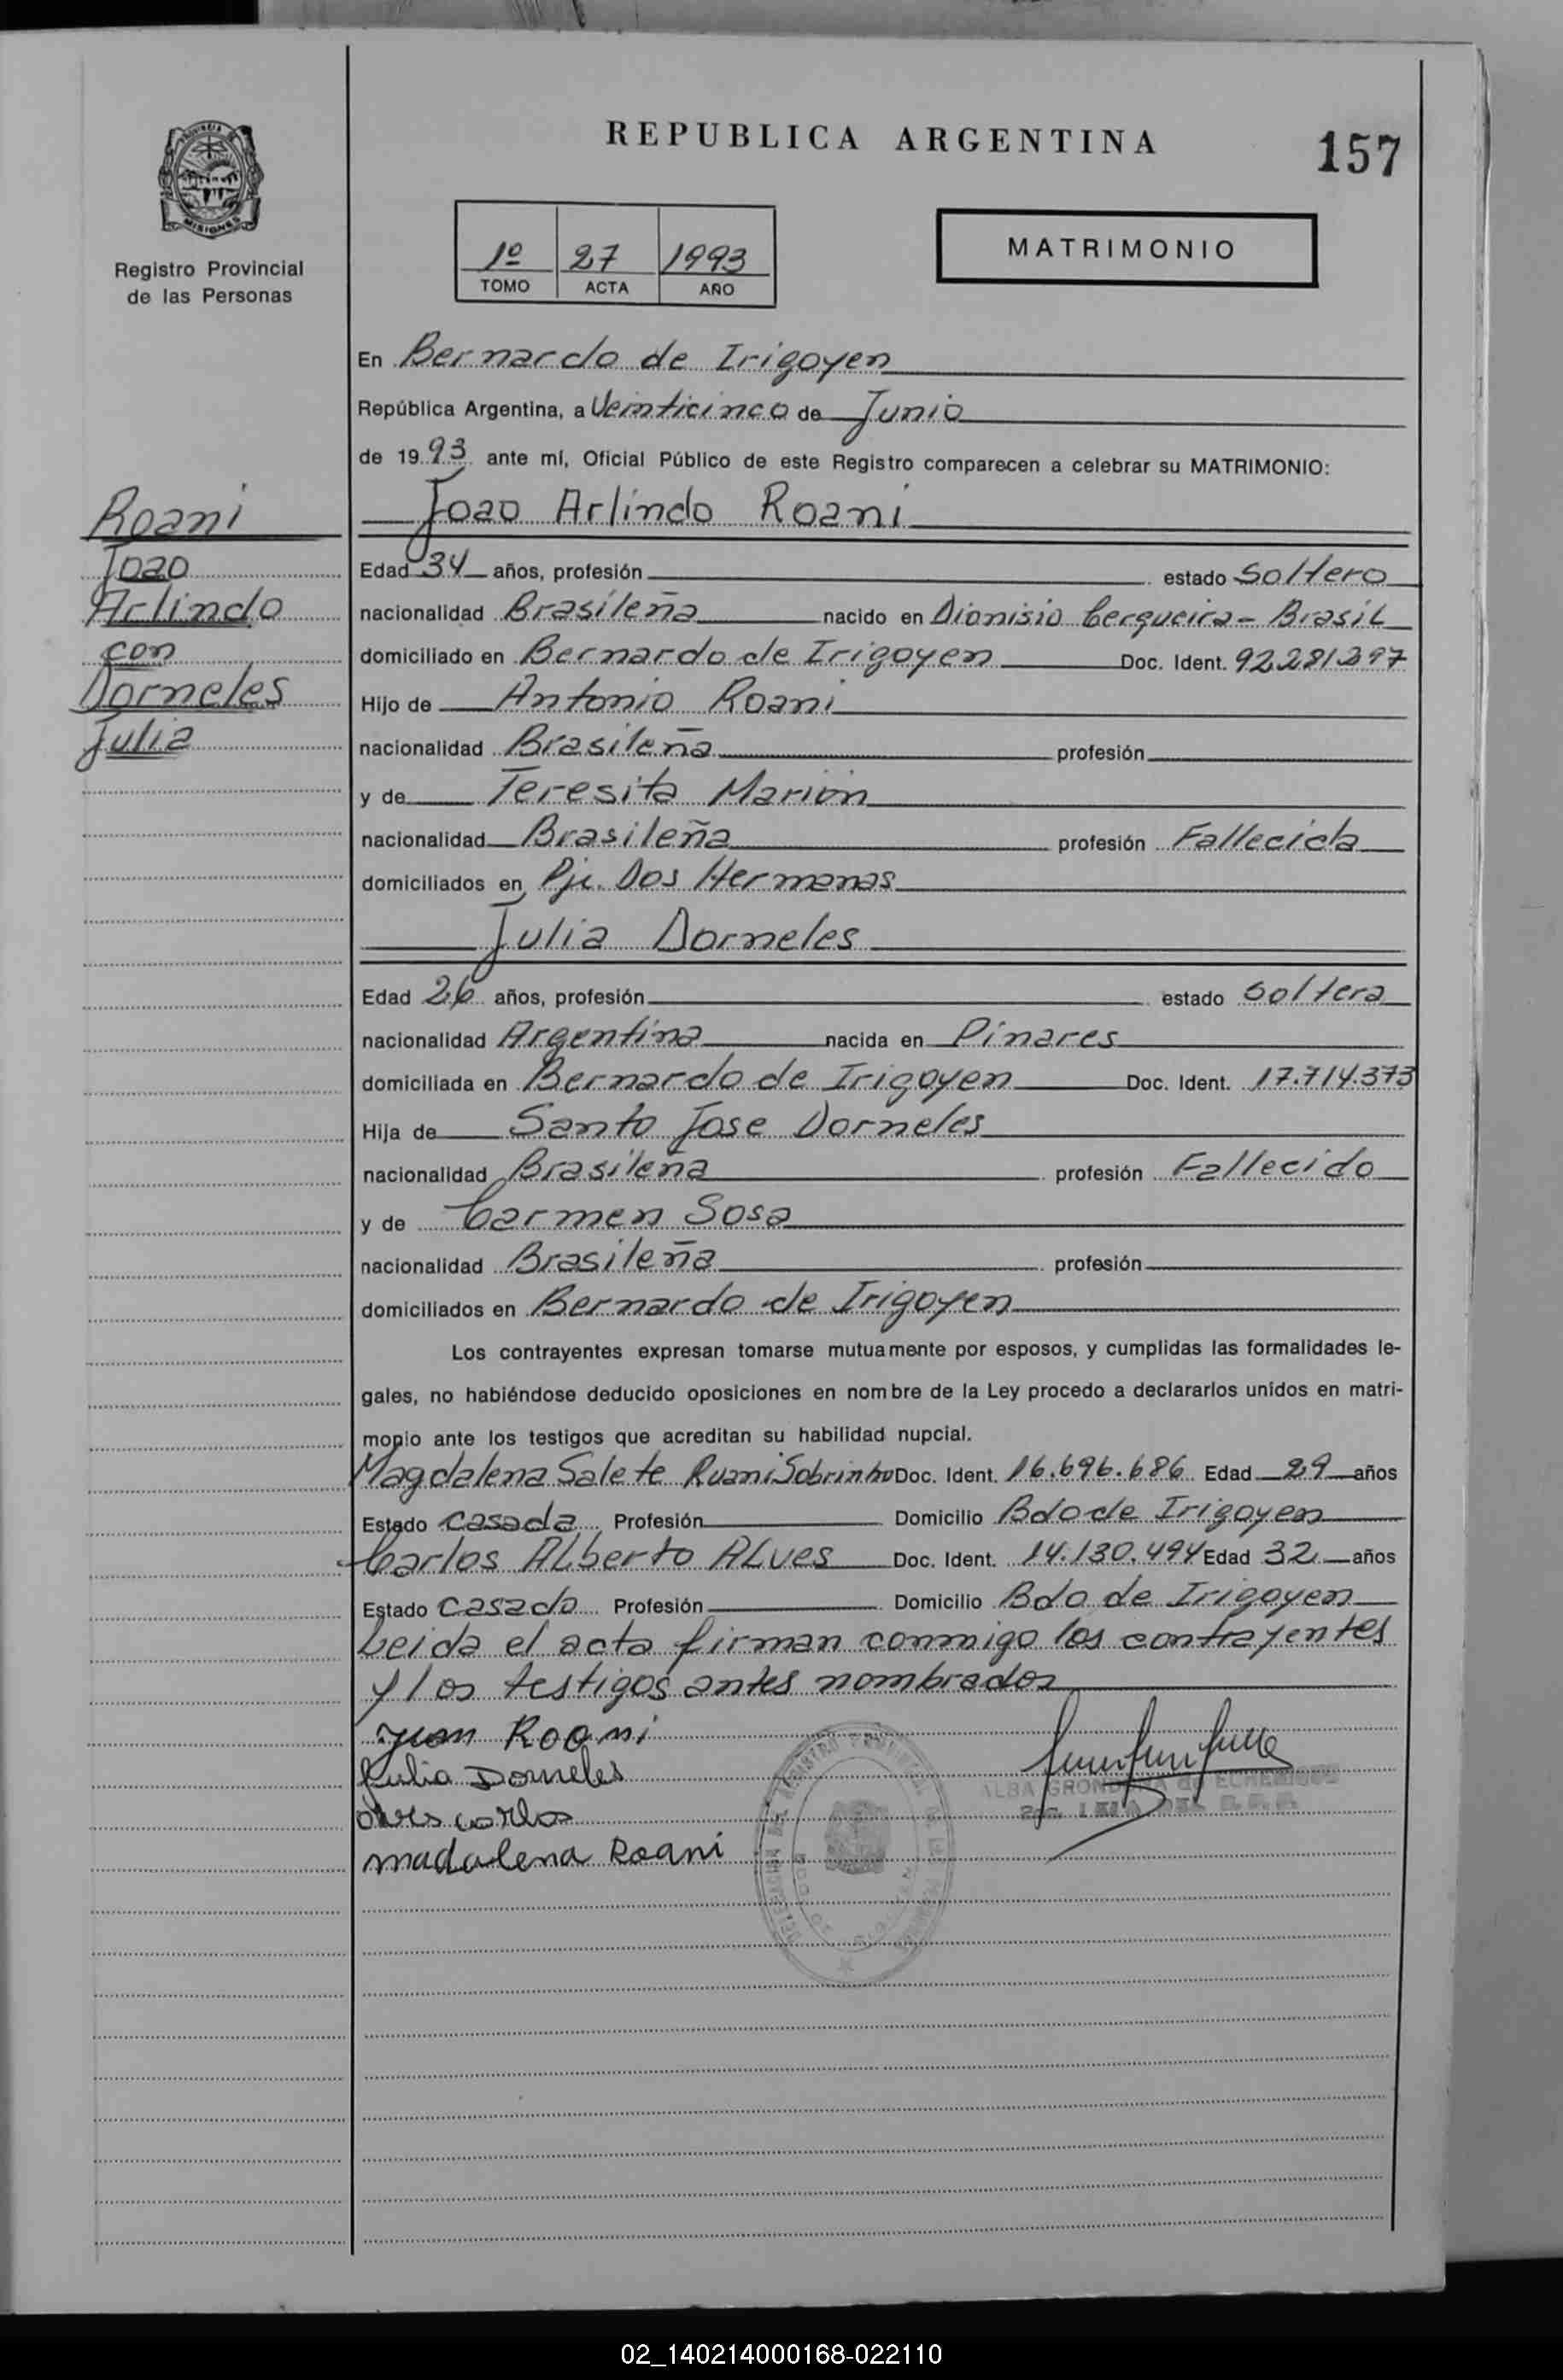 REPUBLICA ARGENTINA
157
PROVINCIA DE
MISIONES
Registro Provincial
de las Personas
1º 27 1993
TOMO ACTA AÑO
MATRIMONIO
En Bernardo de Irigoyen
República Argentina, a Veinticinco de Junio
de 1993 ante mí, Oficial Público de este Registro comparecen a celebrar su MATRIMONIO:
Roani
Joao
Arlindo
con
Dorneles
Julia
Joao Arlindo Roani
Edad 34 años, profesión estado Soltero
nacionalidad Brasileña nacido en Dionisio Cerqueira - Brasil
domiciliado en Bernardo de Irigoyen Doc. Ident. 92.281.297
Hijo de Antonio Roani
nacionalidad Brasileña profesión
y de Teresita Marion
nacionalidad Brasileña profesión Fallecida
domiciliados en Pje. Dos Hermanas
Julia Dorneles
Edad 26 años, profesión estado Soltera
nacionalidad Argentina nacida en Pinares
domiciliada en Bernardo de Irigoyen Doc. Ident. 17.714.373
Hija de Santo Jose Dorneles
nacionalidad Brasileña profesión Fallecido
y de Carmen Sosa
nacionalidad Brasileña profesión
domiciliados en Bernardo de Irigoyen
Los contrayentes expresan tomarse mutuamente por esposos, y cumplidas las formalidades le-
gales, no habiéndose deducido oposiciones en nombre de la Ley procedo a declararlos unidos en matri-
monio ante los testigos que acreditan su habilidad nupcial.
Magdalena Salete Ruani Sobrinho Doc. Ident. 16.696.686 Edad 29 años
Estado Casada Profesión Domicilio Bdo de Irigoyen
Carlos ALberto ALves Doc. Ident. 14.130.494 Edad 32 años
Estado Casado Profesión Domicilio Bdo de Irigoyen
Leida el acta firman conmigo los contrayentes
y los testigos antes nombrados
Juan Roani
Julia Dorneles
alves carlos
madalena Roani
ALBA
02_140214000168-022110